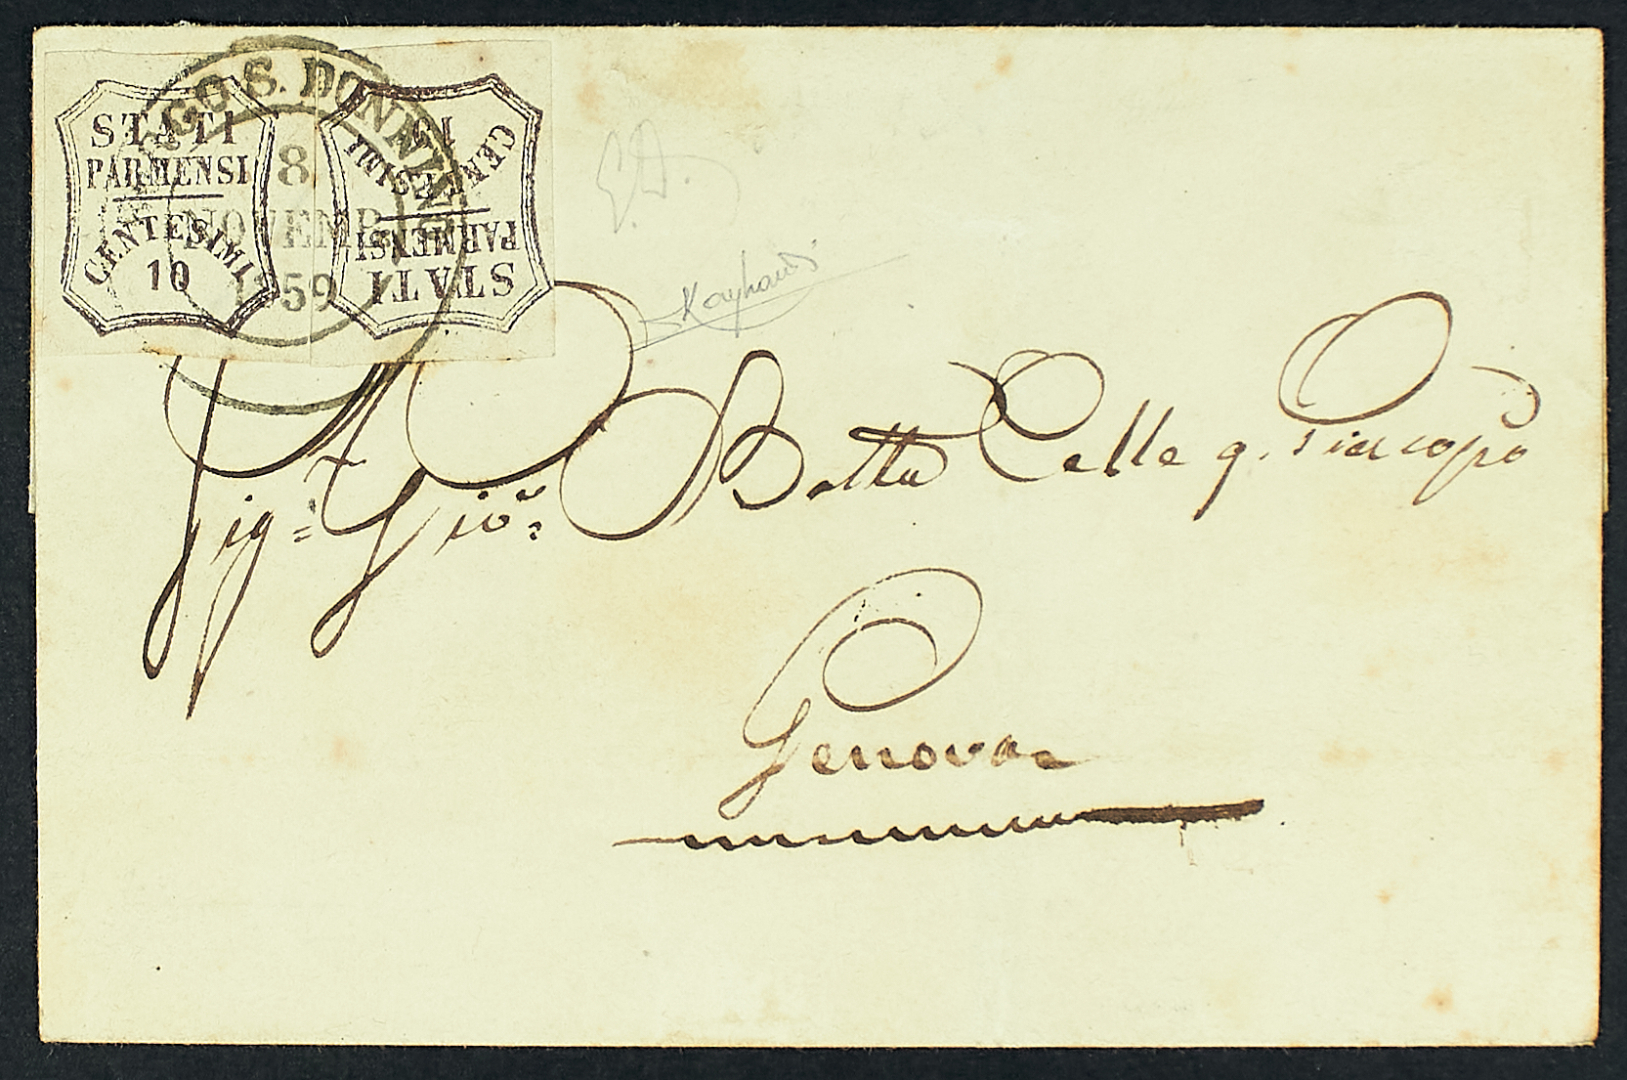 STATI
PARMENSI
CENTESIMI
10
STATI
PARMENSI
CENTESIMI
10
GO S. DONNIN
8
NOVEMB
1859
Sig.r Gio. Batta Celle q. Giacopo
Genova